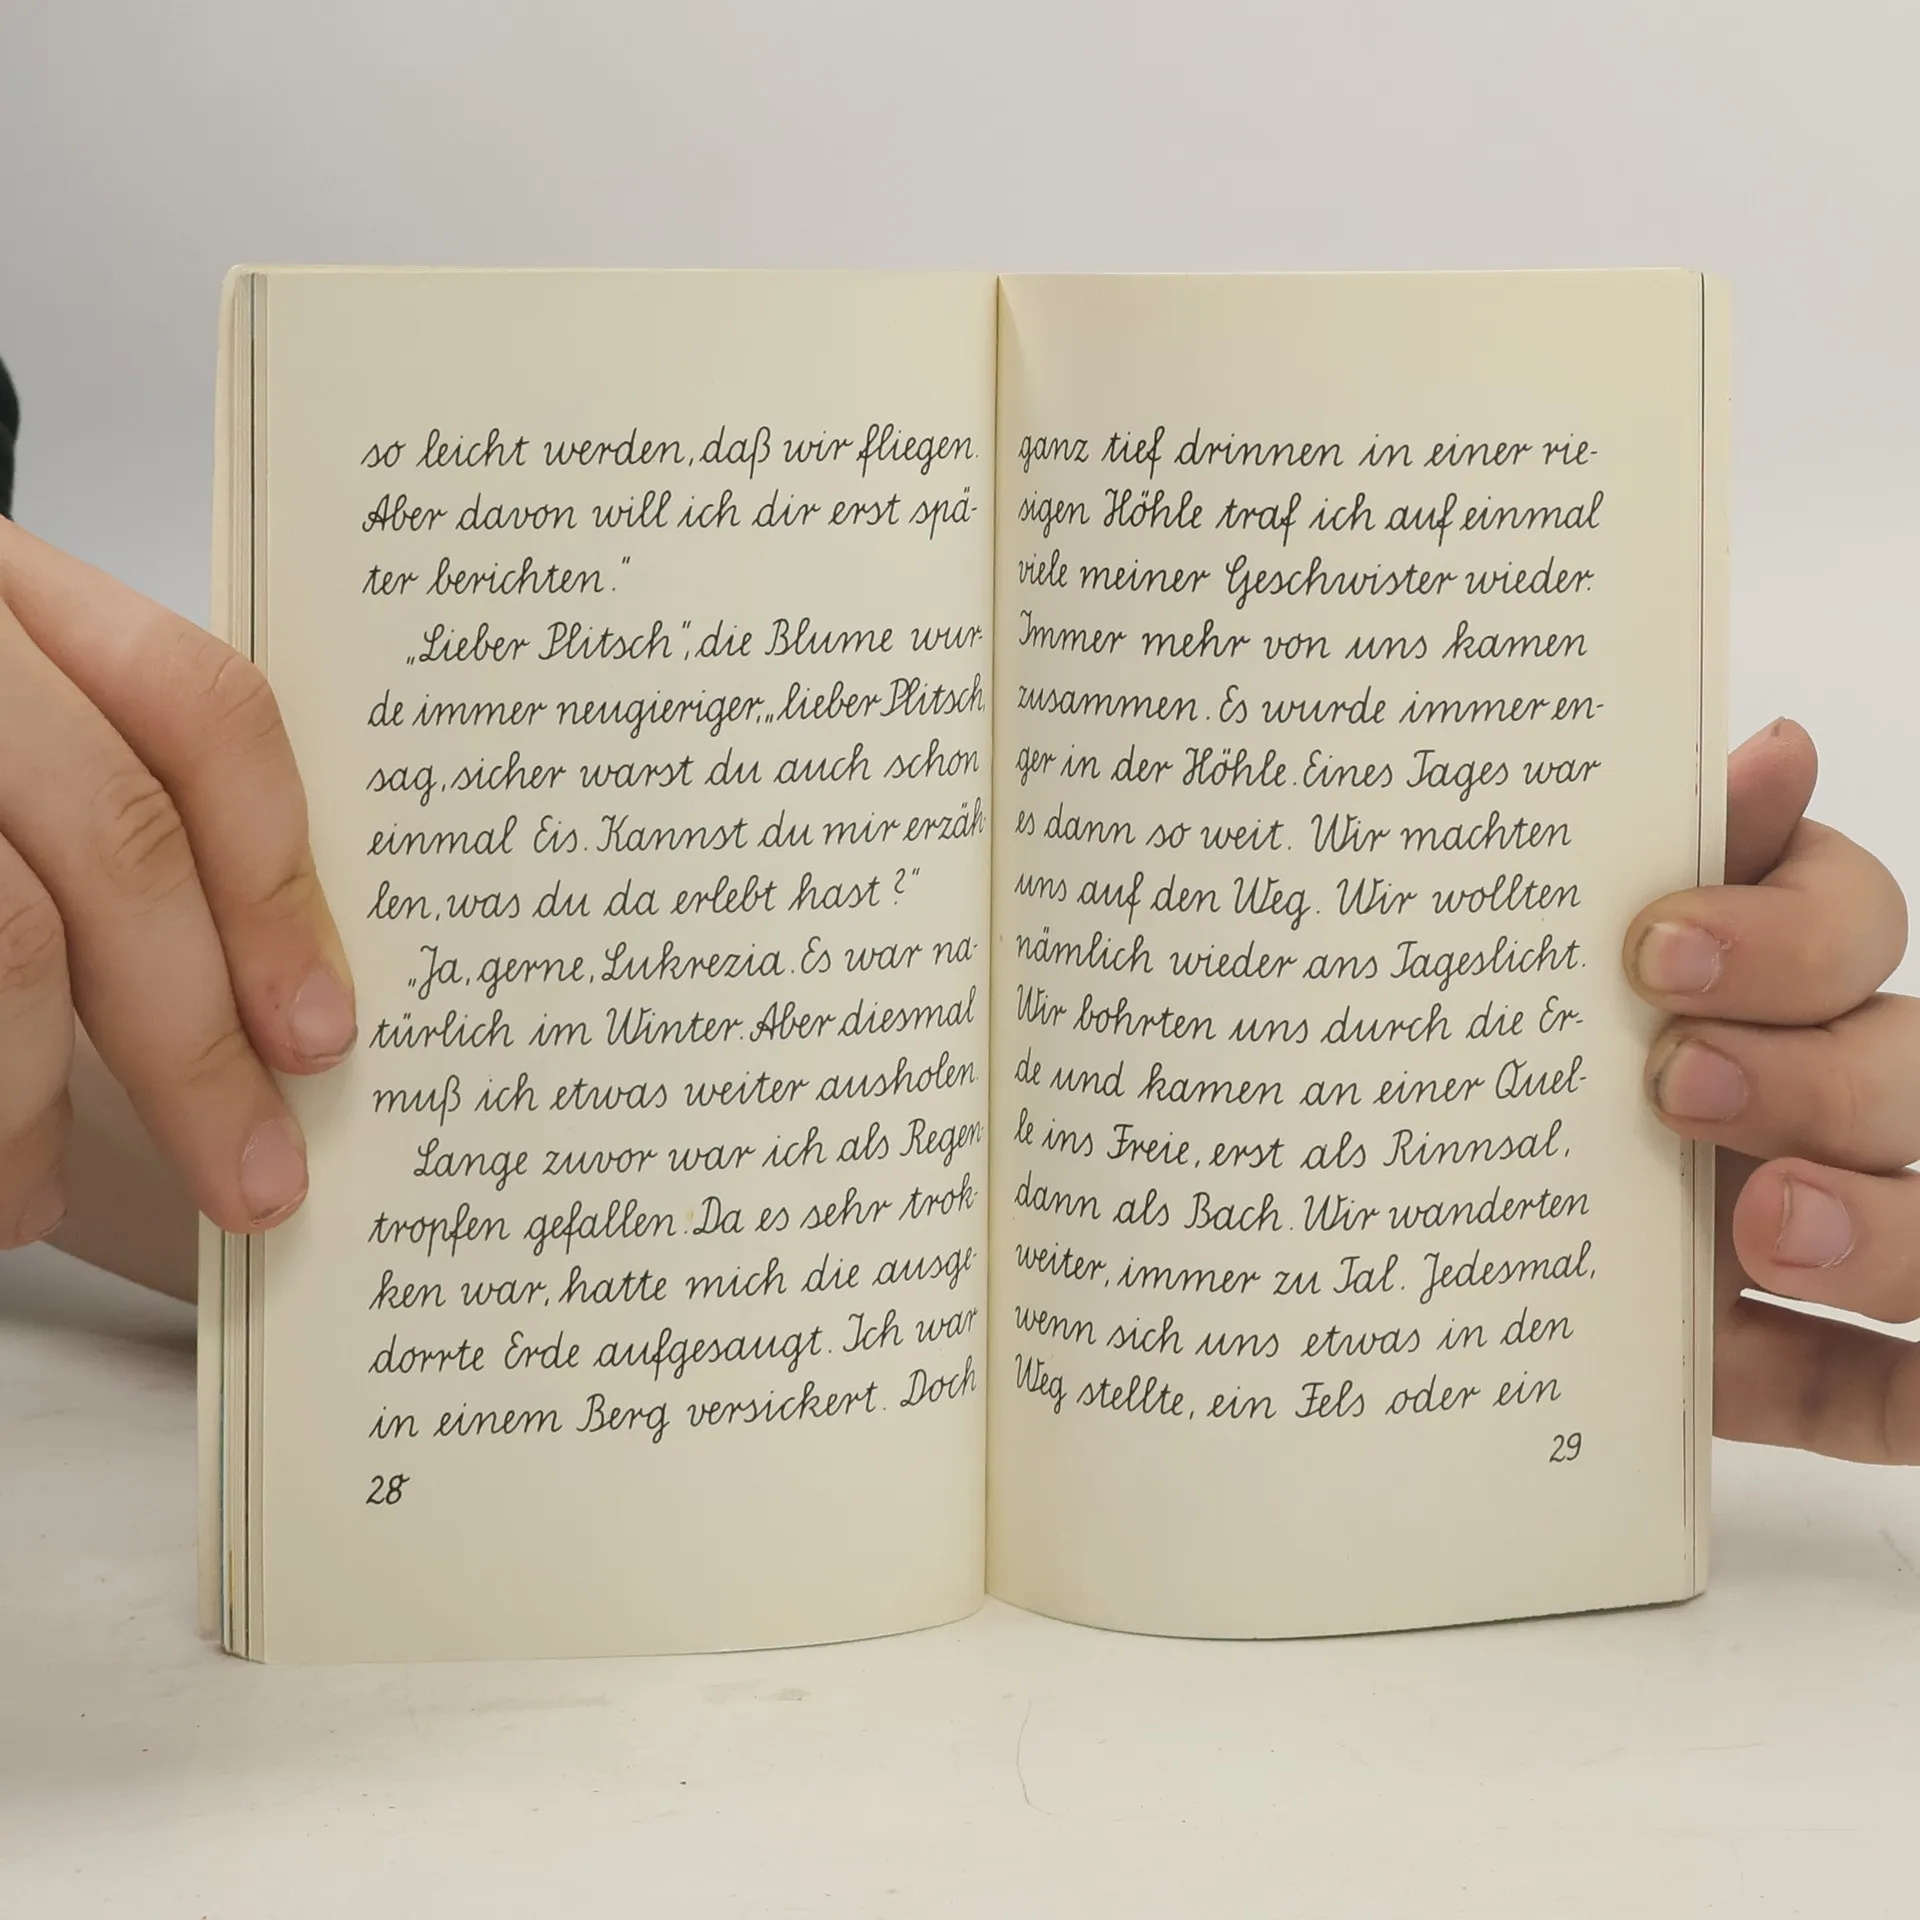 so leicht werden, daß wir fliegen.
Aber davon will ich dir erst spä-
ter berichten."
„Lieber Plitsch", die Blume wur-
de immer neugieriger, „lieber Plitsch,
sag, sicher warst du auch schon
einmal Eis. Kannst du mir erzäh-
len, was du da erlebt hast?"
„Ja, gerne, Lukrezia. Es war na-
türlich im Winter. Aber diesmal
muß ich etwas weiter ausholen.
Lange zuvor war ich als Regen-
tropfen gefallen. Da es sehr trok-
ken war, hatte mich die ausge-
dorrte Erde aufgesaugt. Ich war
in einem Berg versickert. Doch
28
ganz tief drinnen in einer rie-
sigen Höhle traf ich auf einmal
viele meiner Geschwister wieder.
Immer mehr von uns kamen
zusammen. Es wurde immer en-
ger in der Höhle. Eines Tages war
es dann so weit. Wir machten
uns auf den Weg. Wir wollten
nämlich wieder ans Tageslicht.
Wir bohrten uns durch die Er-
de und kamen an einer Quel-
le ins Freie, erst als Rinnsal,
dann als Bach. Wir wanderten
weiter, immer zu Tal. Jedesmal,
wenn sich uns etwas in den
Weg stellte, ein Fels oder ein
29